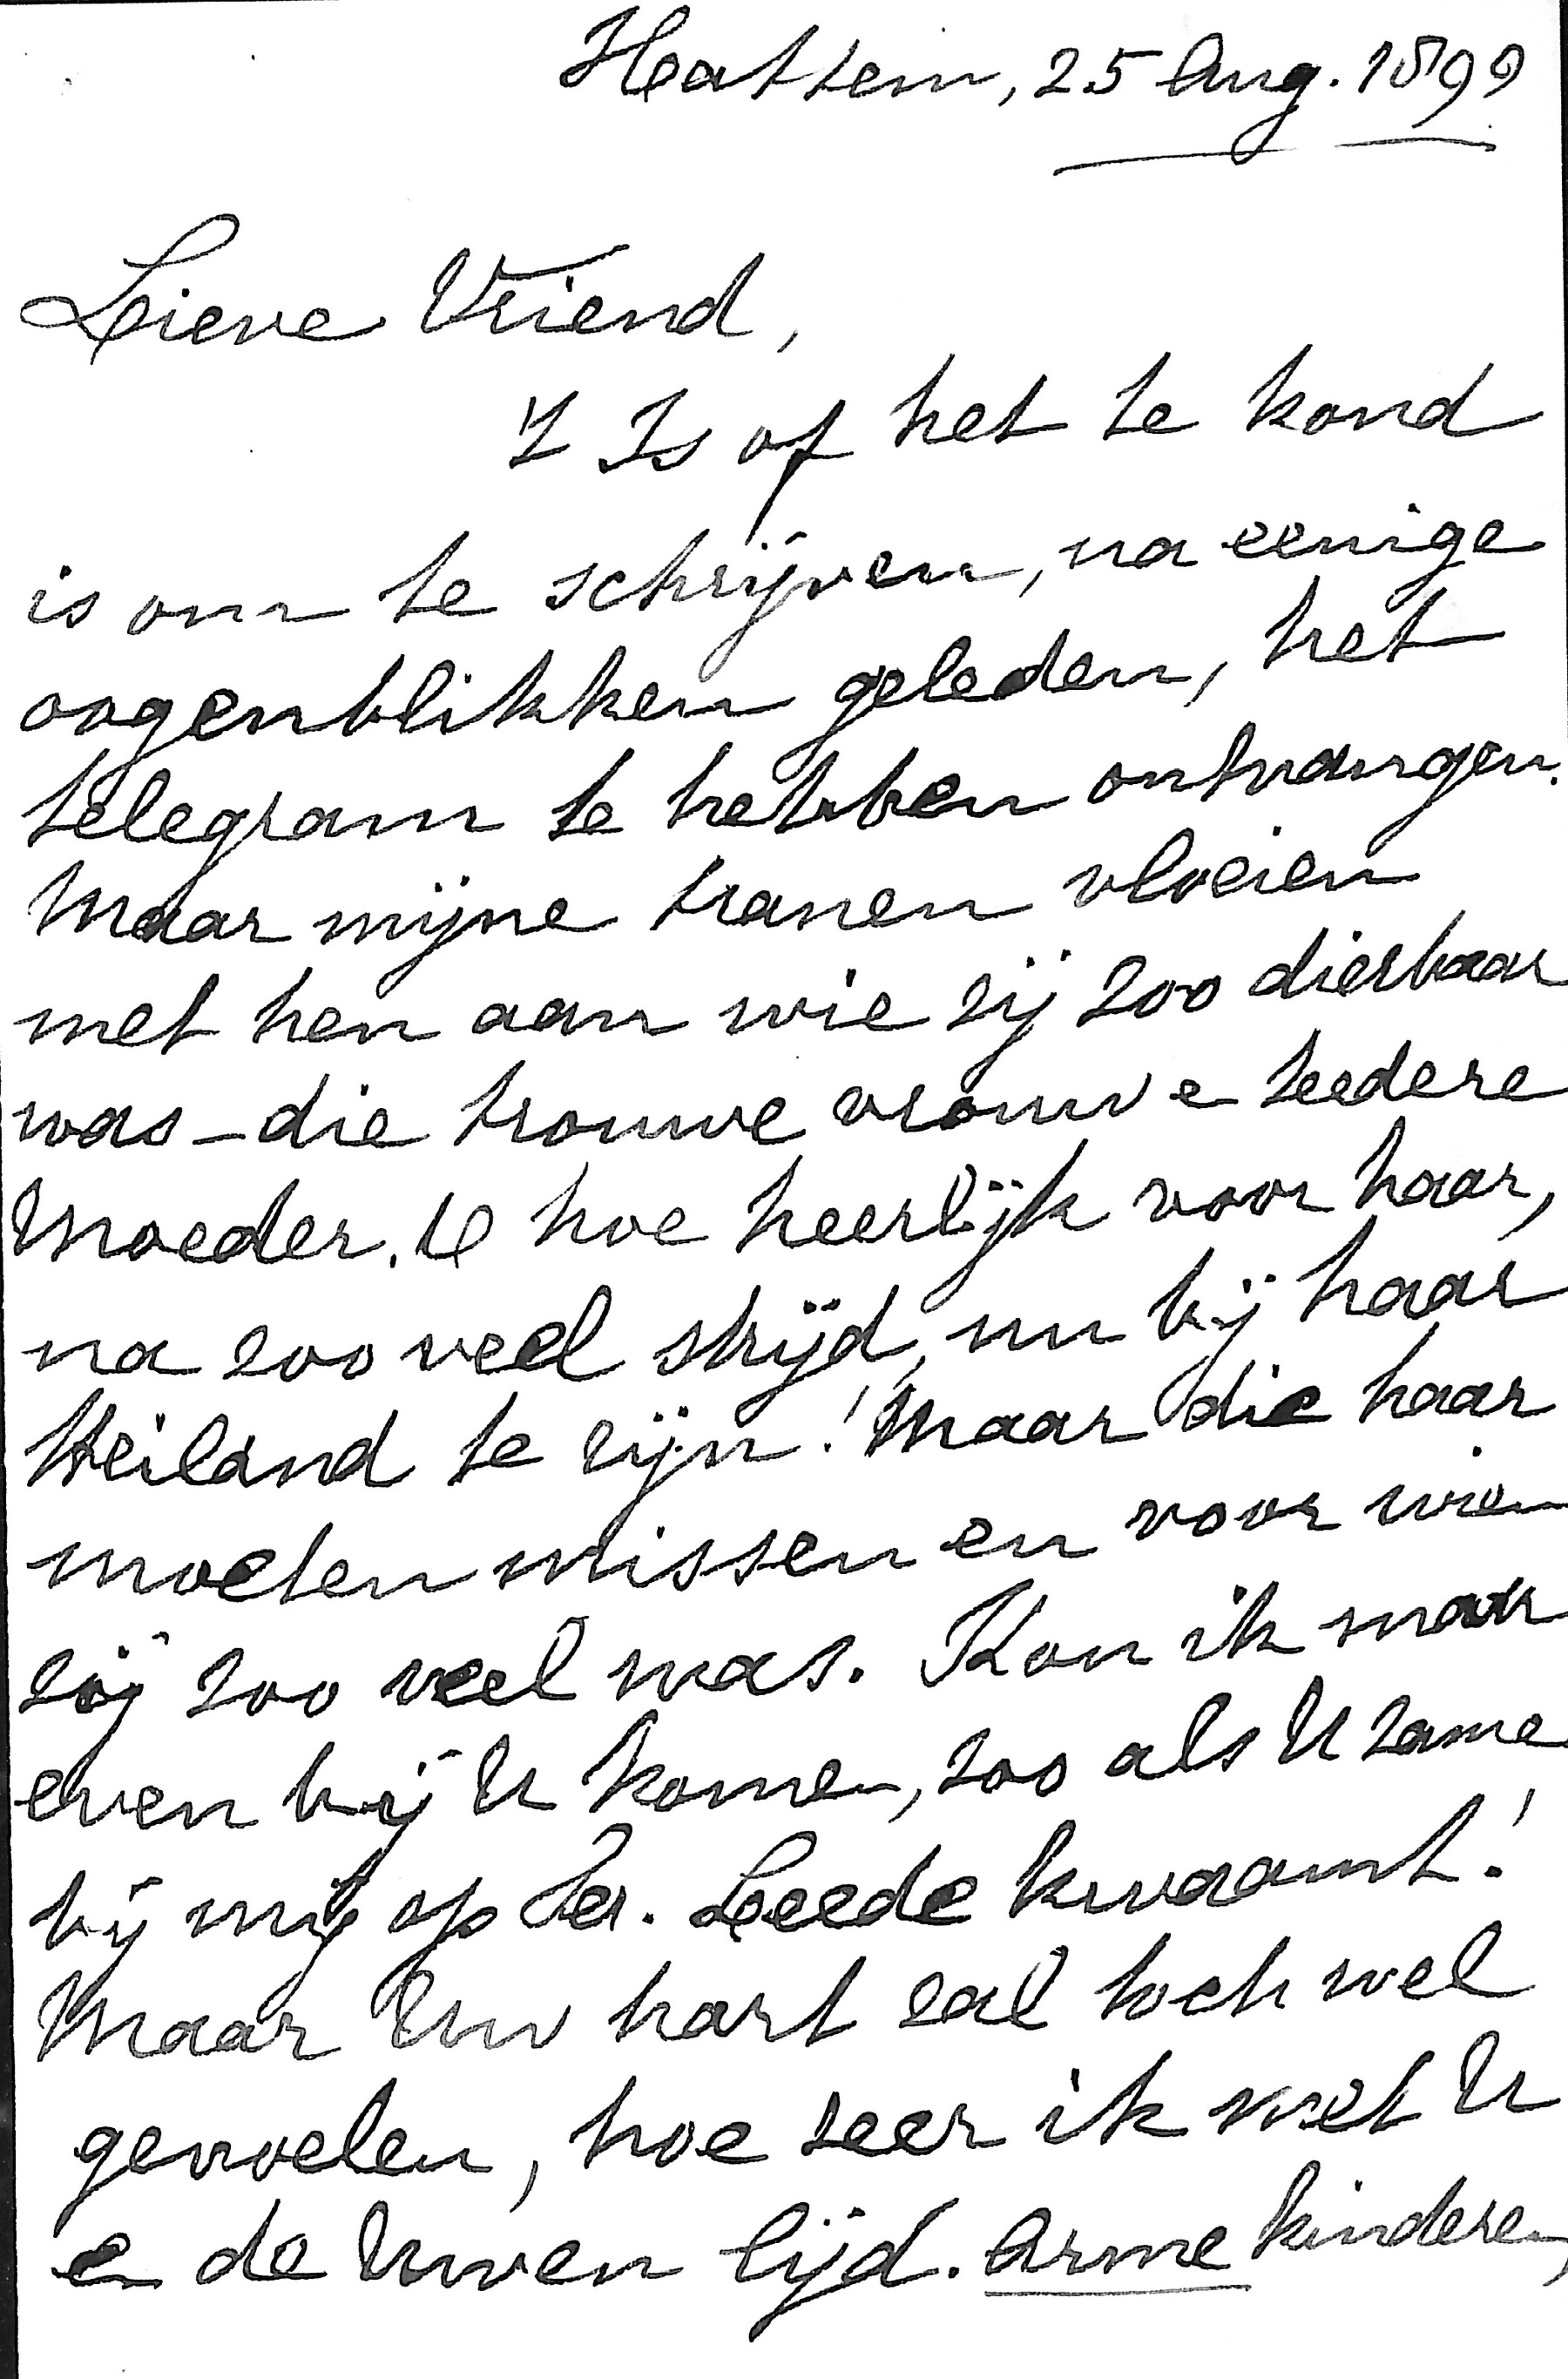 Hattem, 25 Aug. 1899
Lieve Vriend,
't Is of het te koud
is om te schrijven, na eenige
oogenblikken geleden, het
telegram te hebben ontvangen.
Maar mijne tranen vloeien
met hen aan wie zij zoo dierbaar
was – die trouwe vrouw e teedere
Moeder. O hoe heerlijk voor haar,
na zoo veel strijd, nu bij haar
Heiland te zijn! Maar die haar
moeten missen en voor wien
zij zoo veel was. Kon ik maar
even bij U komen, zoo als U zame
bij mij op Ter. Leede kwaamt!
Maar Uw hart zal toch wel
gevoelen, hoe zeer ik met U
e de Uwen lijd. Arme kinderen,